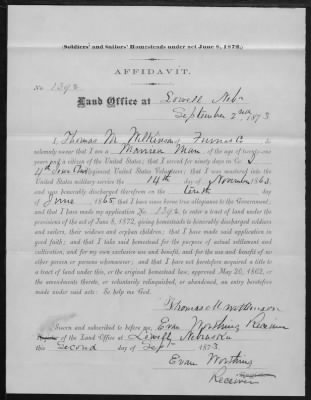 (Soldiers' and Sailors' Homesteads under act June 8, 1872.)
AFFIDAVIT.
No. 1392
Land Office at Lowell Neb.
September 2nd 1873
I, Thomas M Wilkinson, Furnas Co
solemnly swear that I am a Married Man, of the age of twenty-one
years and a citizen of the United States; that I served for ninety days in Co.
4th Iowa Regiment United States Volunteers; that I was mustered into the
United States military service the 14th day of November 1863
and was honorably discharged therefrom on the tenth day
of June 1865 that I have since borne true allegiance to the Government;
and that I have made my application No. 1392, to enter a tract of land under the
provisions of the act of June 8, 1872, giving homesteads to honorably discharged soldiers
and sailors, their widows and orphan children; that I have made said application in
good faith; and that I take said homestead for the purpose of actual settlement and
cultivation, and for my own exclusive use and benefit, and for the use and benefit of no
other person or persons whomsoever; and that I have not heretofore acquired a title to
a tract of land under this, or the original homestead law, approved May 20, 1862, or
the amendments thereto, or voluntarily relinquished, or abandoned, an entry heretofore
made under said acts: So help me God.
Thomas M Wilkinson
Sworn and subscribed to before me, Evan Worthing Receiver
Register of the Land Office at Lowell Nebraska
this Second day of Sept 1873.
Evan Worthing
Receiver